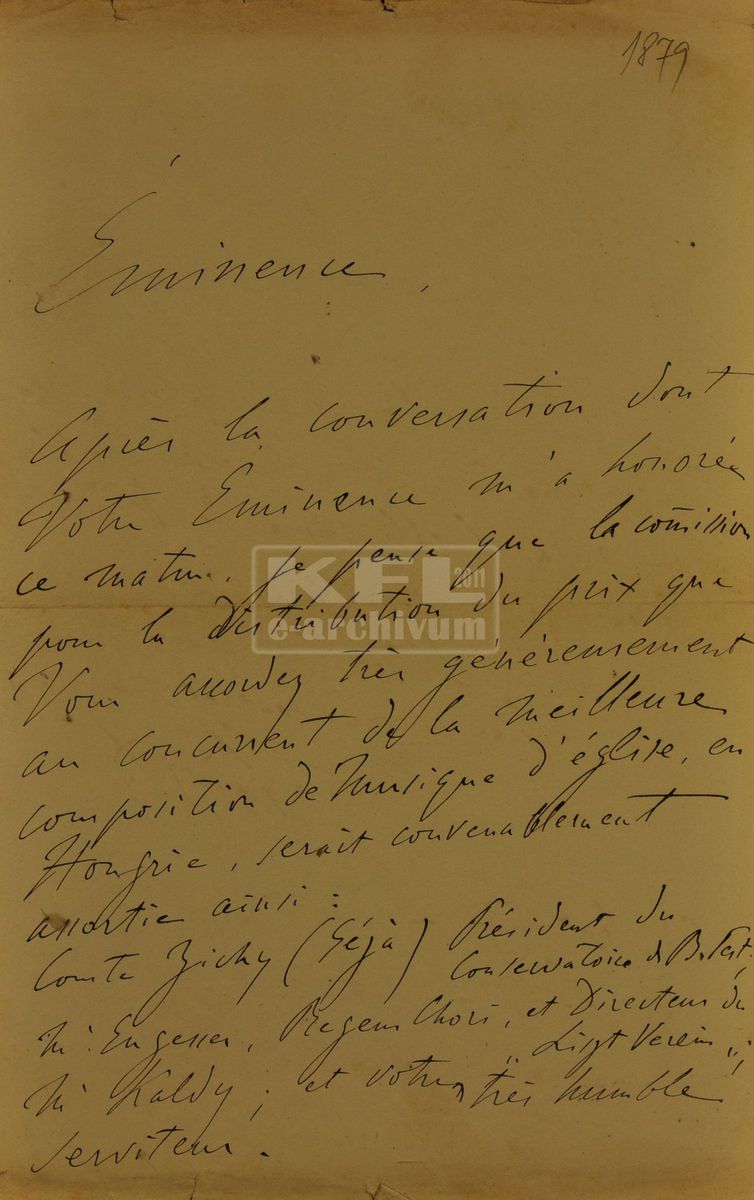 1879
Éminence,
Après la conversation dont
Votre Eminence m'a honorée
ce matin, je pense que la com̃ission
pour la distribution du prix que
Vous accordez très généreusement
au concurrent de la meilleure
composition de Musique d'église, en
Hongrie, serait convenablement
assortie ainsi :
Comte Zichy (Géjà) Président du
Conservatoire de B. Pest,
Mr Engesser, Regens Chori, et Directeur du
„Liszt Verein„;
Mr Káldy; et votre très humble
serviteur.
KFL
e-archivum